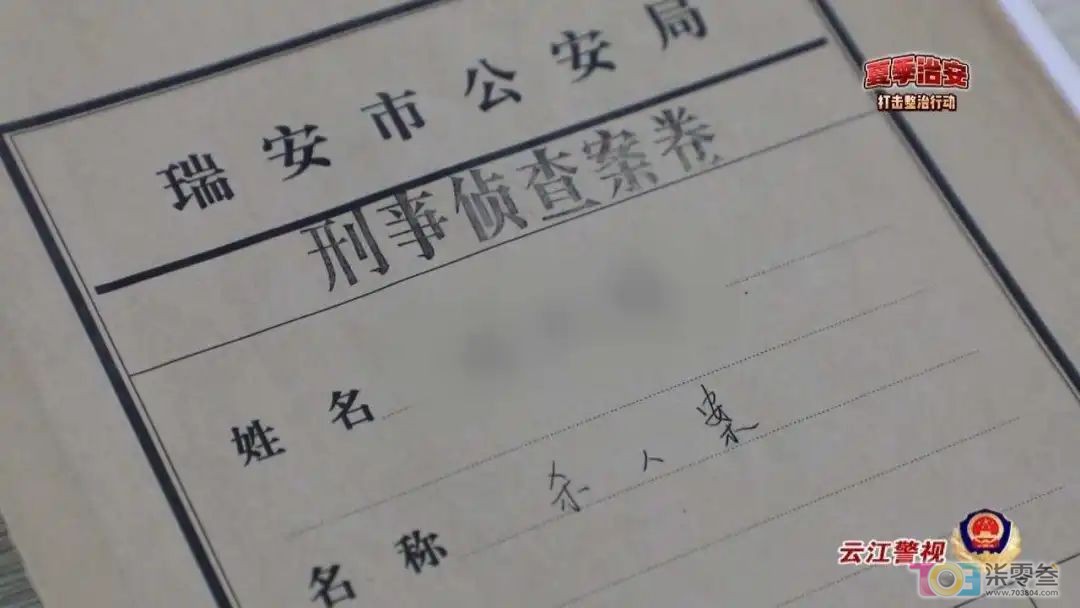 夏季治安
打击整治行动
瑞安市公安局
刑事侦查案卷
姓名
名称 杀人案
云江警视
703 柒零叁
www.703804.com